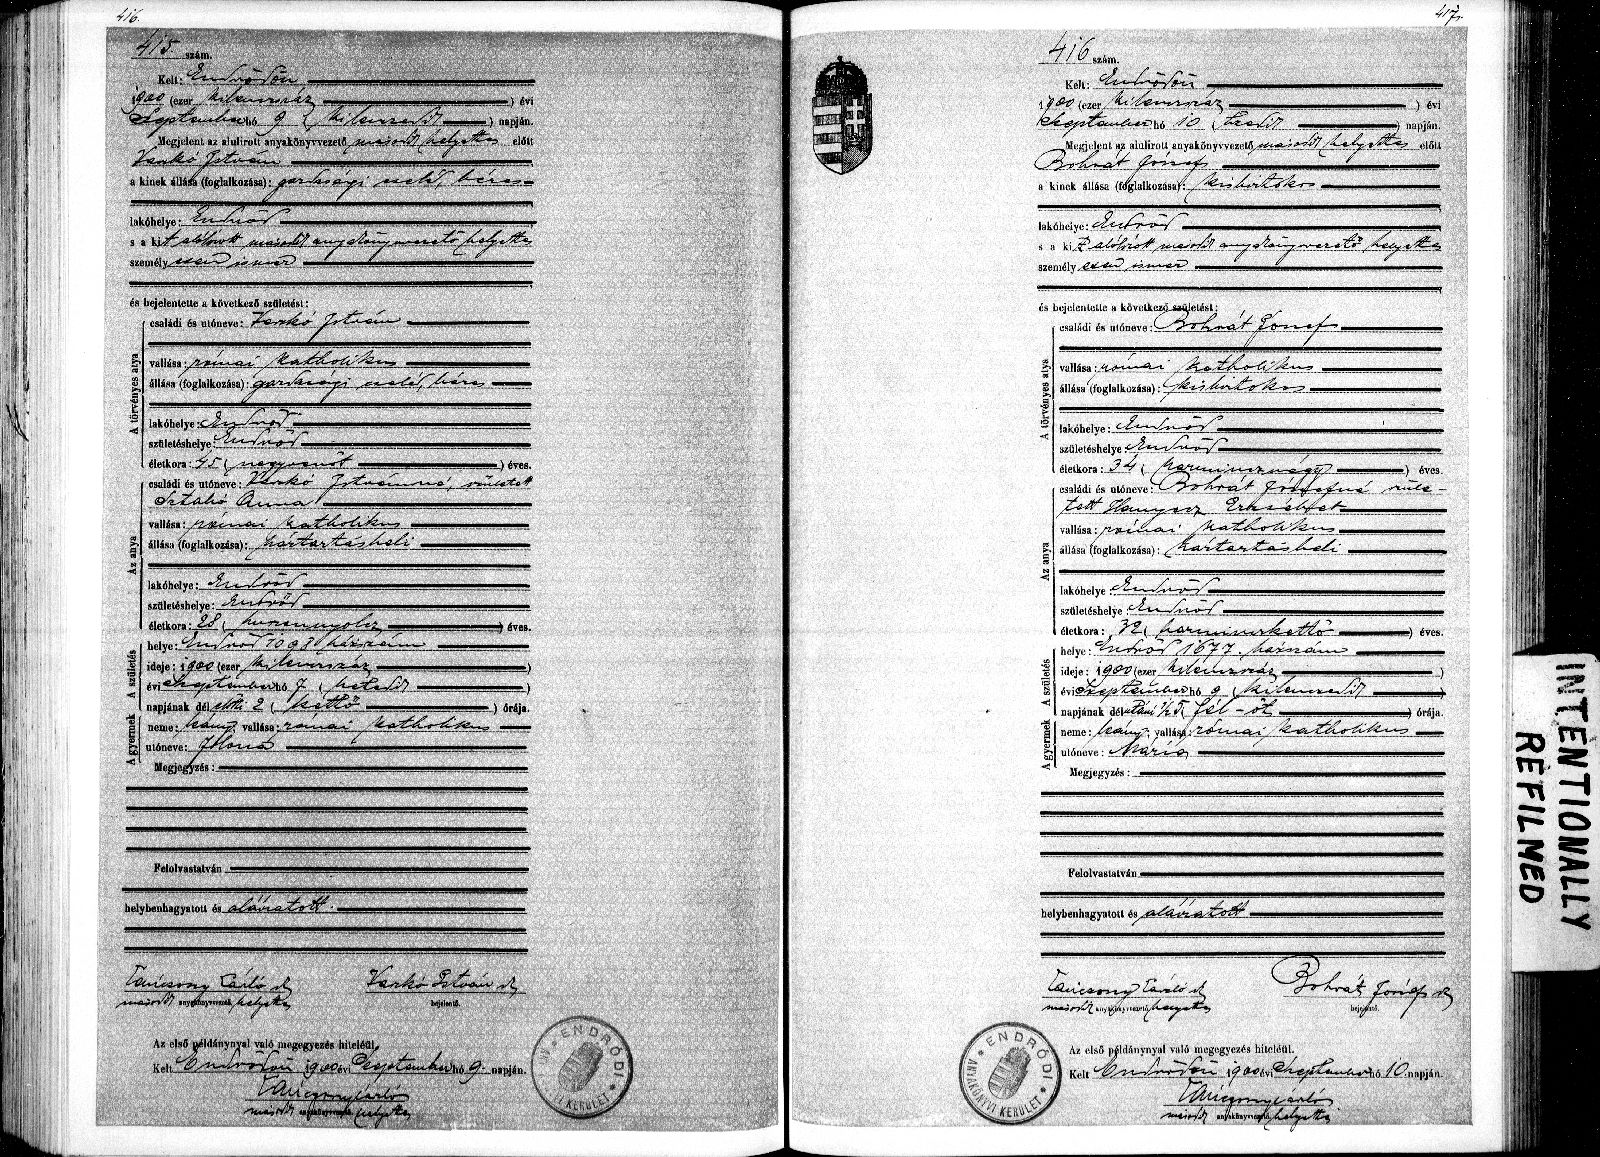 416.
415 szám.
Kelt: Endrődön
1900 (ezer kilenczszáz ) évi
Szeptember hó 9 (kilenczedik ) napján.
Megjelent az alulirott anyakönyvvezető másodk helyettes előtt
Varkó István
a kinek állása (foglalkozása): gazdasági cseléd, béres
lakóhelye: Endrőd
s a kit alólírott másodk anyakönyvvezető helyettes
személyesen ismer
és bejelentette a következő születést:
A törvényes atya
családi és utóneve: Varkó István
vallása: római katholikus
állása (foglalkozása): gazdasági cseléd, béres
lakóhelye: Endrőd
születéshelye: Endrőd
életkora: 45 (negyvenöt ) éves.
Az anya
családi és utóneve: Varkó Istvánné, született
Sztahó Anna
vallása: római katholikus
állása (foglalkozása): háztartásbeli
lakóhelye: Endrőd
születéshelye: Endrőd
életkora: 28 (huszonnyolcz ) éves.
A születés
helye: Endrőd 1098 házszám
ideje: 1900 (ezer kilenczszáz )
évi Szeptember hó 7 (hetedik )
napjának délelőtti 2 (kettő ) órája.
A gyermek
neme: leány; vallása: római katholikus
utóneve: Ilona
Megjegyzés:
Felolvastatván
helybenhagyatott és aláiratott.
Tánczsony László sk Varkó István sk
másodk anyakönyvvezető helyettes bejelentő.
Az első példánynyal való megegyezés hiteléül.
Kelt Endrődön 1900 évi Szeptember hó 9. napján.
másodk anyakönyvvezető helyettes
ENDRŐDI
KERÜLET
417.
416 szám.
Kelt: Endrődön
1900 (ezer kilenczszáz ) évi
Szeptember hó 10 (tizedik ) napján.
Megjelent az alulirott anyakönyvvezető másodk helyettes előtt
Bohrát József
a kinek állása (foglalkozása): kisbirtokos
lakóhelye: Endrőd
s a kit alólírott másodk anyakönyvvezető helyettes
személyesen ismer
és bejelentette a következő születést:
A törvényes atya
családi és utóneve: Bohrát József
vallása: római katholikus
állása (foglalkozása): kisbirtokos
lakóhelye: Endrőd
születéshelye: Endrőd
életkora: 34 (harmincznégy ) éves.
Az anya
családi és utóneve: Bohrát Józsefné szüle-
tett Hanyecz Erzsébet
vallása: római katholikus
állása (foglalkozása): háztartásbeli
lakóhelye: Endrőd
születéshelye: Endrőd
életkora: 32 (harminczkettő ) éves.
A születés
helye: Endrőd 1677. házszám
ideje: 1900 (ezer kilenczszáz )
évi Szeptember hó 9 (kilenczedik )
napjának délutáni ½5 (fél-öt ) órája.
A gyermek
neme: leány; vallása: római katholikus
utóneve: Mária
Megjegyzés:
Felolvastatván
helybenhagyatott és aláiratott
Tánczsony László sk Bohrát József sk
másodk anyakönyvvezető helyettes bejelentő.
Az első példánynyal való megegyezés hiteléül.
Kelt Endrődön 1900 évi Szeptember hó 10. napján.
másodk anyakönyvvezető helyettes
ENDRŐDI
ANYAKÖNYVI KERÜLET
INTENTIONALLY
REFILMED